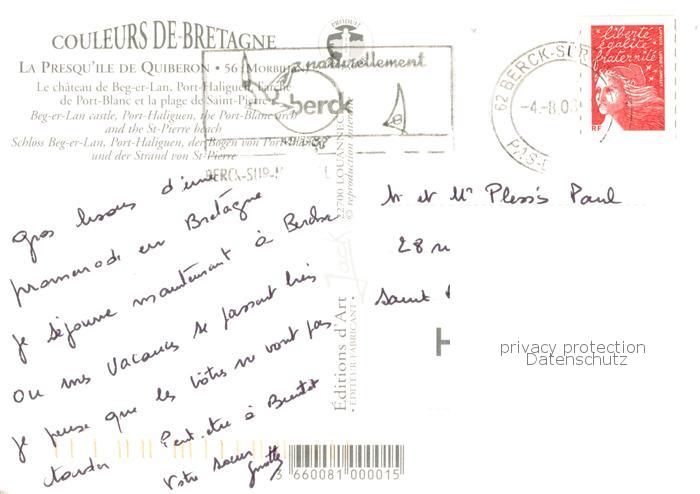 COULEURS DE BRETAGNE
LA PRESQU'ILE DE QUIBERON • 56
Le château de Beg-er-Lan, Port-Haliguen, l'arche
de Port-Blanc et la plage de Saint-Pierre
Beg-er-Lan castle, Port-Haliguen, the Port-Blanc arch
and the St-Pierre beach
Schloss Beg-er-Lan, Port-Haliguen, der Bogen von Port-Blanc
und der Strand von St-Pierre
PRODUIT
naturellement
berck
BERCK-SUR-M
62 BERCK-SUR
-4.-8.03
PAS-
liberté
égalité
fraternité
RF
22700 LOUANNEC
© reproduction
Jack
Éditions d'Art
• EDITEUR FABRICANT •
Gros bisous d'une
promenade en Bretagne
je séjourne maintenant à Berck
ou mes vacances se passent très
je pense que les vôtres ne vont pas
tarder Peut-être à Bientôt
Votre soeur
M et Me Plessis Paul
28 r
Saint
H
privacy protection
Datenschutz
3 660081 000015